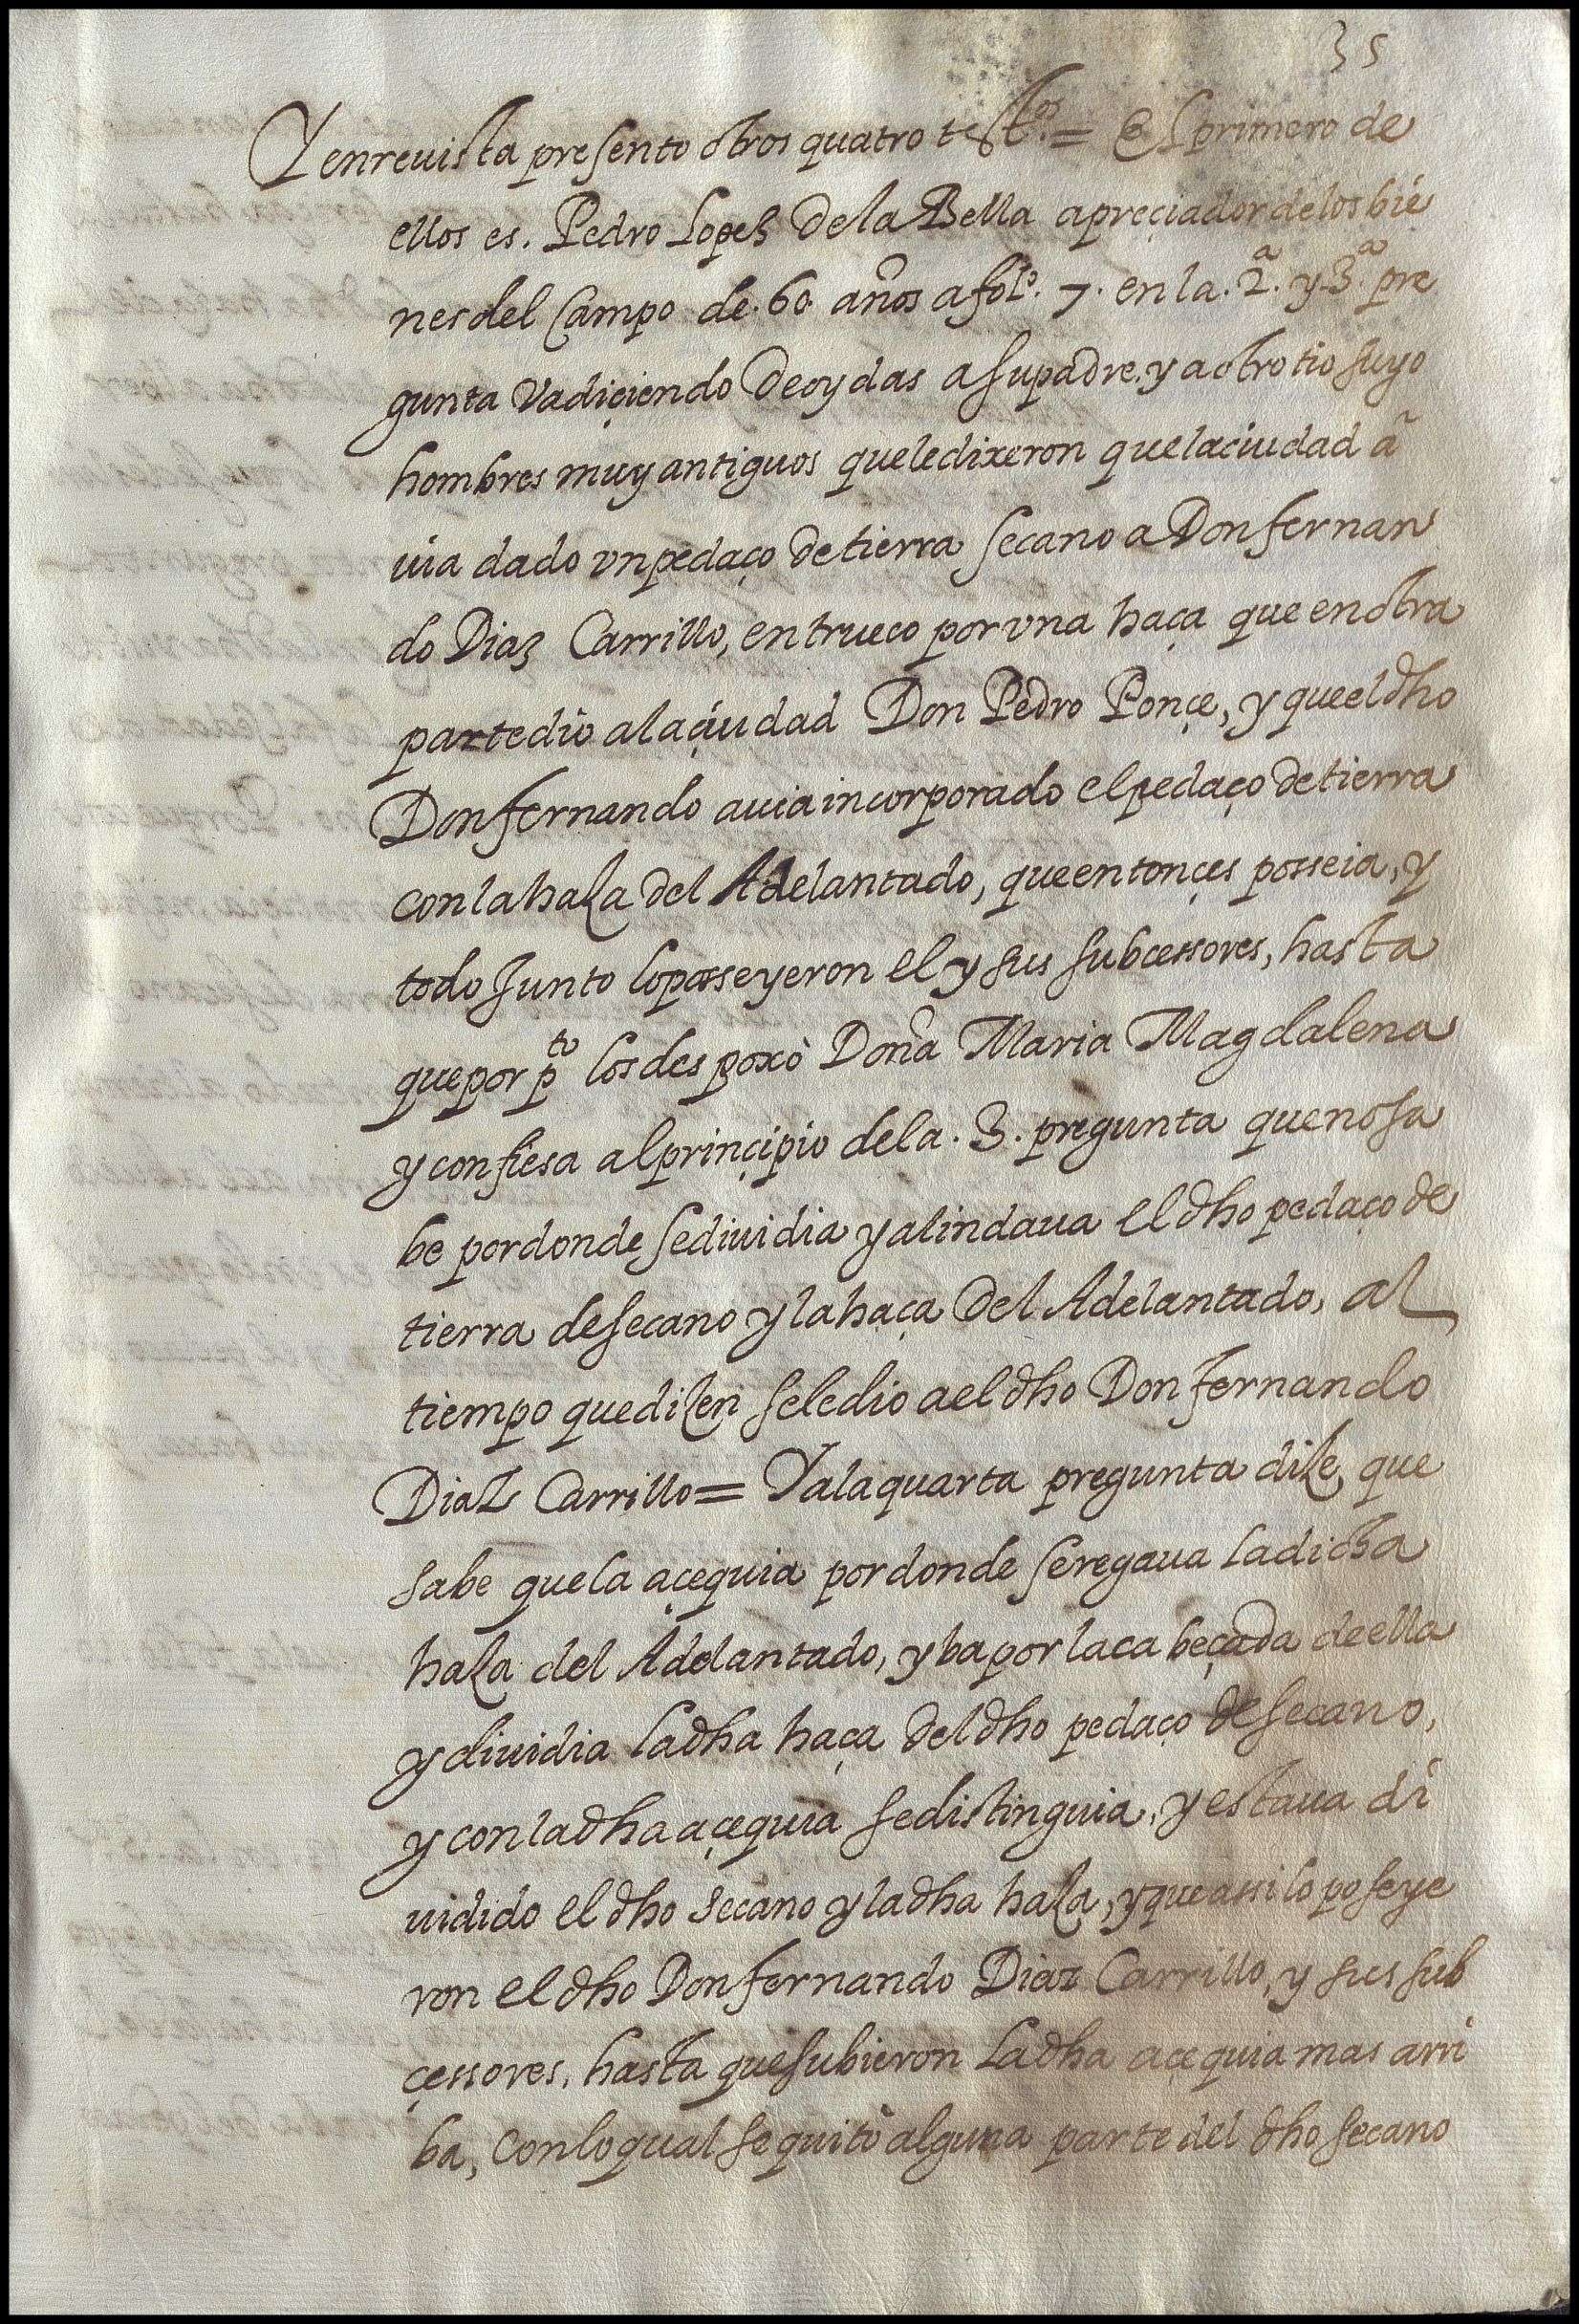 35
Y en reuista presento otros quatro testos.= El primero de
ellos es. Pedro Lopez de la Bella apreçiador de los bie
nes del Campo de. 60. años a folo. 7. en la. 2.a y 3.a pre
gunta Va diçiendo de oydas a su padre. y a otro tio suyo
hombres muy antiguos que le dixeron que la ciudad a
uia dado vn pedaço de tierra secano a Don fernan
do Diaz Carrillo, en trueco por vna haça que en otra
parte dio a la çiudad Don Pedro Ponçe, y que el dho
Don fernando auia incorporado el pedaço de tierra
con la haza del Adelantado, que entonçes posseia, y
todo Junto lo posseyeron el y sus subcessores, hasta
que por pto los despoxò Doña Maria Magdalena
y confiesa al prinçipio de la. 3. pregunta que no sa
be por donde se diuidia y alindaua el dho pedaço de
tierra de secano y la haça del Adelantado, al
tiempo que dizen se le dio a el dho Don fernando
Diaz Carrillo= Y a la quarta pregunta dize que
sabe que la açequia por donde se regaua la dicha
haza del Adelantado, yba por la cabeçada de ella
y diuidia la dha haça del dho pedaço de secano,
y con la dha açequia se distinguia, y estaua di
uidido el dho secano y la dha haza, y que assi lo poseye
ron el dho Don fernando Diaz Carrillo, y sus sub
çessores, hasta que subieron la dha açequia mas arri
ba, Con lo qual se quitò alguna parte del dho secano